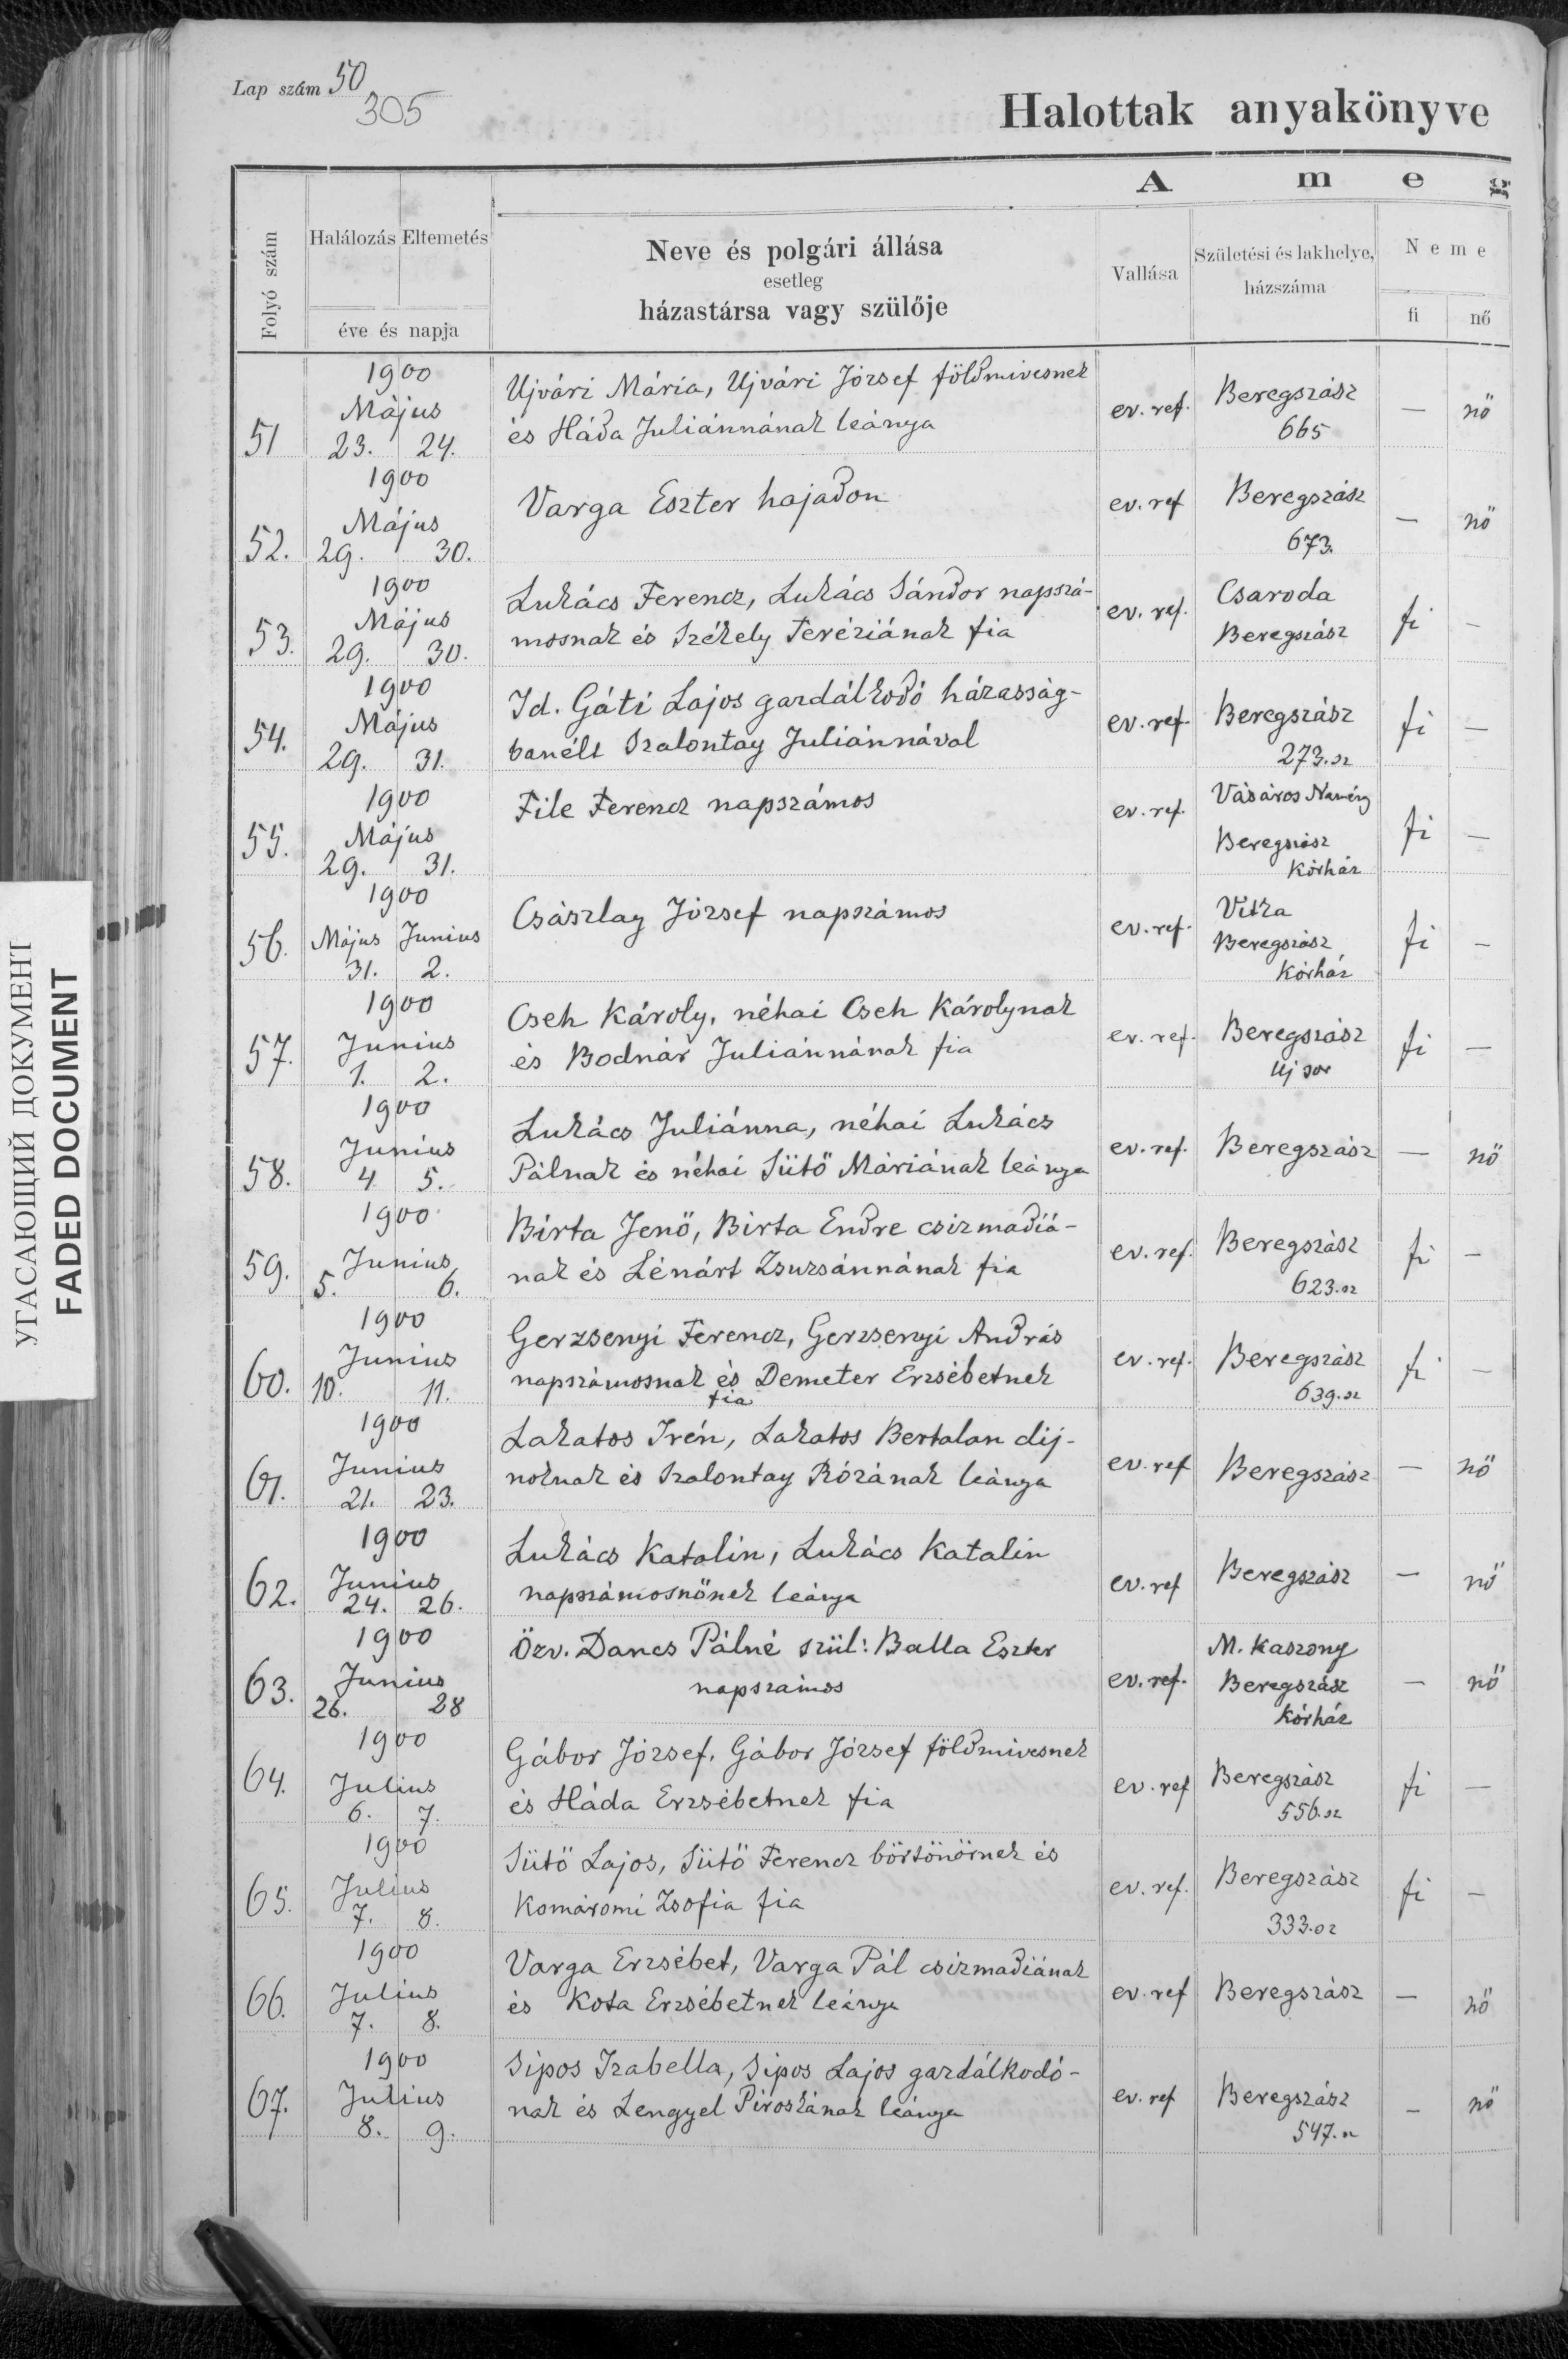 Lap szám 50
305
Halottak anyakönyve
A m e g
Folyó szám
Halálozás Eltemetés
éve és napja
Neve és polgári állása
esetleg
házastársa vagy szülője
Vallása
Születési és lakhelye,
házszáma
Neme
fi nő
1900
Május
51 23. 24.
Ujvári Mária, Ujvári József földmivesnek
és Háda Juliánnának leánya
ev. ref.
Beregszász
665
— nő
1900
Május
52. 29. 30.
Varga Eszter hajadon
ev. ref
Beregszász
673.
— nő
1900
Május
53. 29. 30.
Lukács Ferencz, Lukács Sándor napszá-
mosnak és Székely Teréziának fia
ev. ref.
Csaroda
Beregszász
fi —
1900
Május
54. 29. 31.
Id. Gáti Lajos gazdálkodó házasság-
banélt Szalontay Juliánnával
ev. ref.
Beregszász
273. sz
fi —
1900
Május
55. 29. 31.
File Ferencz napszámos
ev. ref.
Vásáros Namény
Beregszász
Kórház
fi —
1900
56. Május Junius
31. 2.
Császlay József napszámos
ev. ref.
Vitka
Beregszász
Kórház
fi —
1900
Junius
57. 1. 2.
Cseh Károly, néhai Cseh Károlynak
és Bodnár Juliánnának fia
ev. ref.
Beregszász
Uj sor
fi —
1900
Junius
58. 4 5.
Lukács Juliánna, néhai Lukács
Pálnak és néhai Sütő Máriának leánya
ev. ref.
Beregszász
— nő
1900
Junius
59. 5. 6.
Birta Jenő, Birta Endre csizmadiá-
nak és Lénárt Zsuzsánnának fia
ev. ref.
Beregszász
623. sz
fi —
1900
Junius
60. 10. 11.
Gerzsenyi Ferencz, Gerzsenyi András
napszámosnak és Demeter Erzsébetnek
fia
ev. ref.
Beregszász
639. sz
fi —
1900
Junius
61. 21. 23.
Lakatos Irén, Lakatos Bertalan dij-
noknak és Szalontay Rózának leánya
ev. ref
Beregszász
— nő
1900
Junius
62. 24. 26.
Lukács Katalin, Lukács Katalin
napszámosnőnek leánya
ev. ref
Beregszász
— nő
1900
Junius
63. 26. 28
Özv. Dancs Pálné szül: Balla Eszter
napszámos
ev. ref.
M. Kaszony
Beregszász
Kórház
— nő
1900
64. Julius
6. 7.
Gábor József, Gábor József földmivesnek
és Háda Erzsébetnek fia
ev. ref
Beregszász
556. sz
fi —
1900
65. Julius
7. 8.
Sütő Lajos, Sütő Ferencz börtönörnek és
Komáromi Zsofia fia
ev. ref.
Beregszász
333. sz
fi —
1900
66. Julius
7. 8.
Varga Erzsébet, Varga Pál csizmadiának
és Kota Erzsébetnek leánya
ev. ref
Beregszász
— nő
1900
67. Julius
8. 9.
Sipos Izabella, Sipos Lajos gazdálkodó-
nak és Lengyel Piroskának leánya
ev. ref
Beregszász
547. sz
— nő
УГАСАЮЩИЙ ДОКУМЕНТ
FADED DOCUMENT